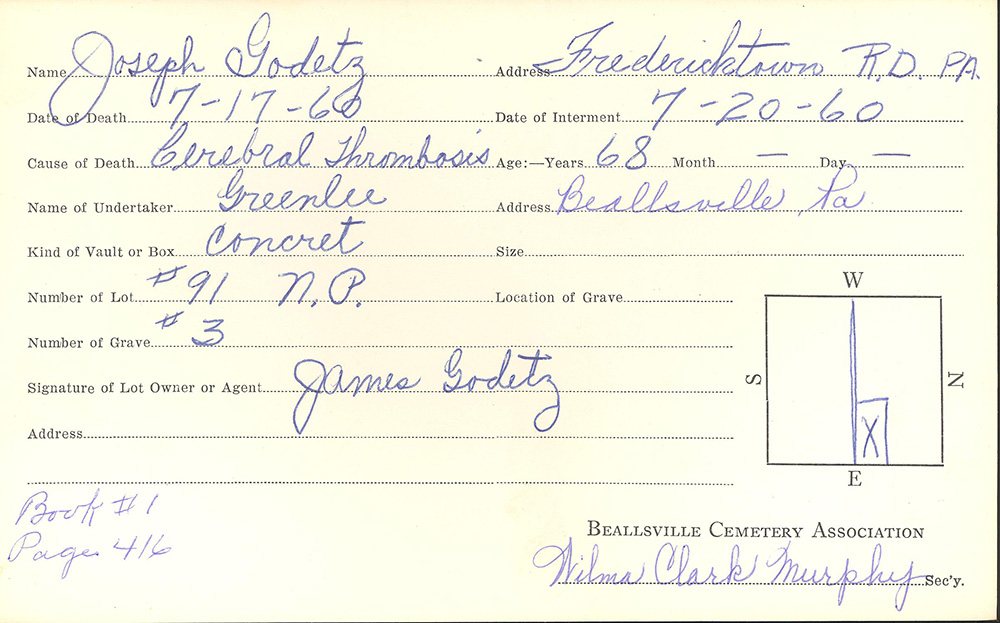 Name Joseph Godetz Address Fredericktown R.D. PA.
Date of Death 7-17-60 Date of Interment 7-20-60
Cause of Death Cerebral Thrombosis Age:—Years 68 Month — Day —
Name of Undertaker Greenlee Address Beallsville, Pa
Kind of Vault or Box Concret Size
Number of Lot #91 N.P. Location of Grave
Number of Grave #3
Signature of Lot Owner or Agent James Godetz
Address
W
S N
X
E
Book #1
Page 416
BEALLSVILLE CEMETERY ASSOCIATION
Wilma Clark Murphy Sec'y.